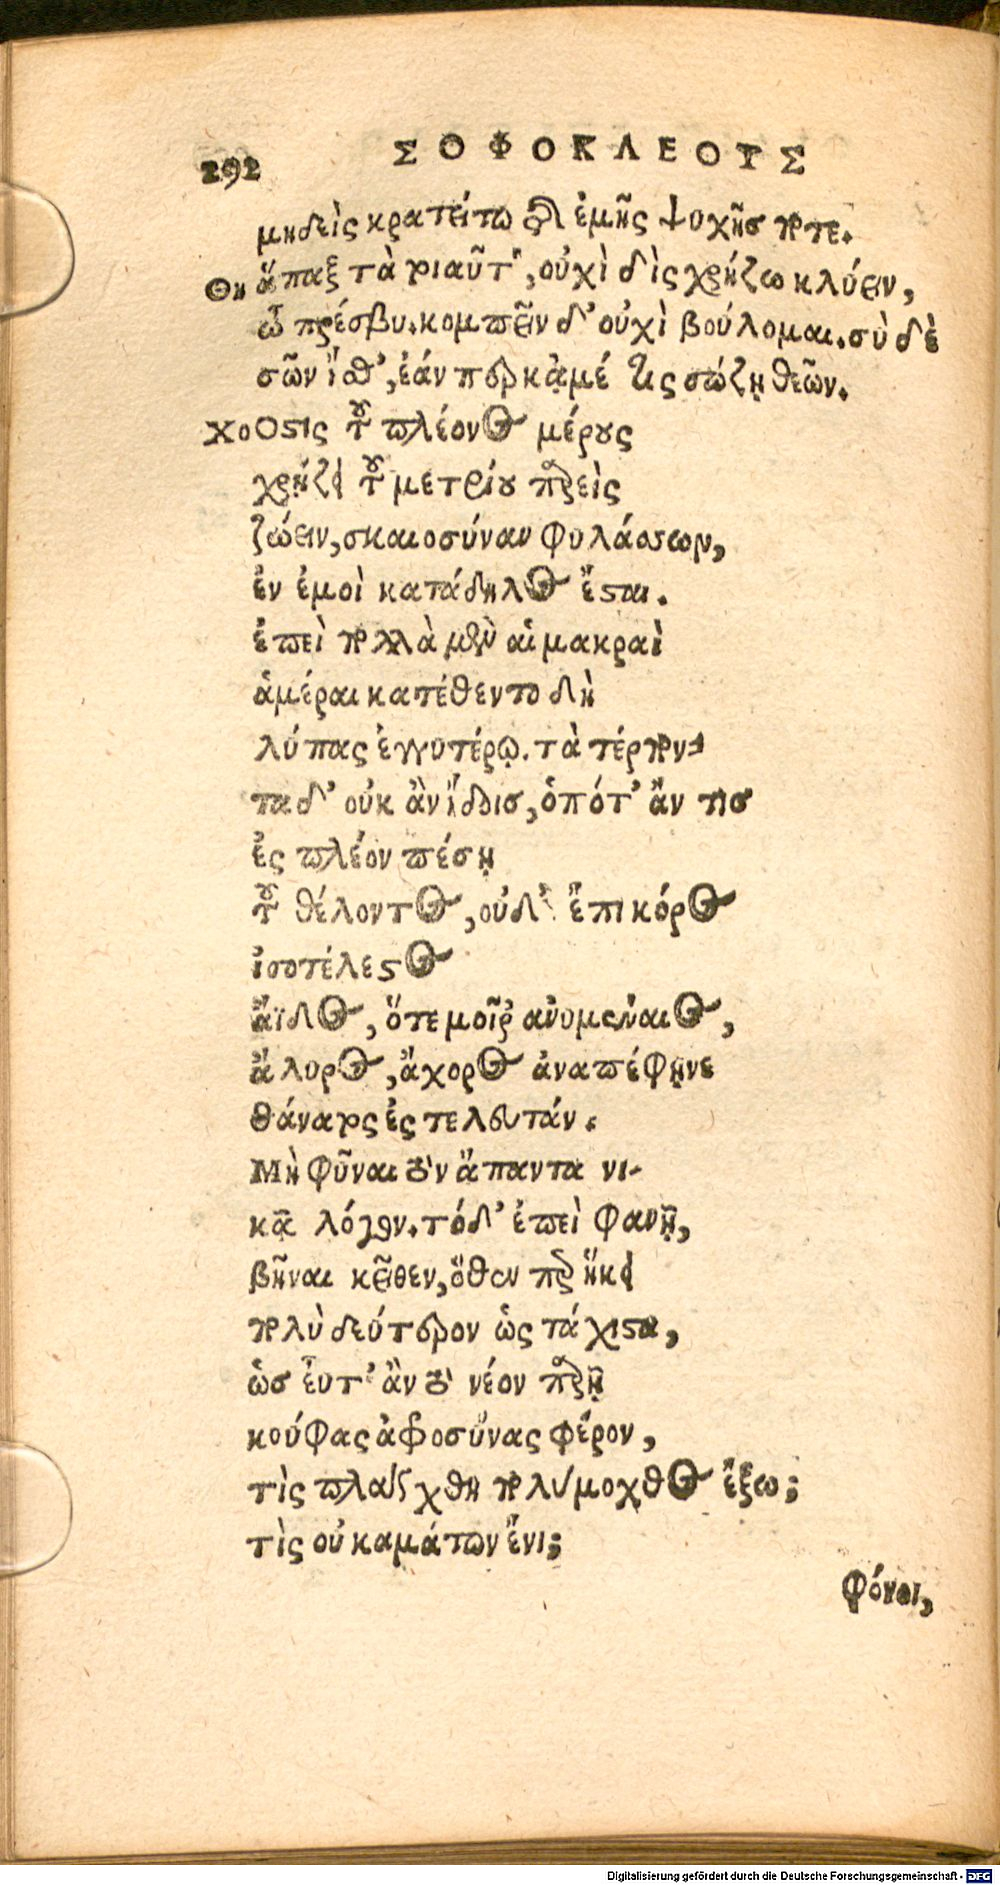 292 ΣΟΦΟΚΛΕΟΥΣ
μηδεὶς κρατείτω τῆς ἐμῆς ψυχῆς ποτε.
Θη ἅπαξ τὰ τοιαῦτ', οὐχὶ δὶς χρῄζω κλύειν,
ὦ πρέσβυ. κομπεῖν δ' οὐχὶ βούλομαι. σὺ δὲ
σῶν ἴσθ', ἐάν περ κᾀμέ τις σώζῃ θεῶν.
Χο Ὅστις τοῦ πλέονος μέρους
χρῄζει τοῦ μετρίου παρεὶς
ζώειν, σκαιοσύναν φυλάσσων,
ἐν ἐμοὶ κατάδηλος ἔσται.
ἐπεὶ πολλὰ μὲν αἱ μακραὶ
ἁμέραι κατέθεντο δὴ
λύπας ἐγγυτέρω. τὰ τέρπον-
τα δ' οὐκ ἂν ἴδοις, ὁπότ' ἄν τις
ἐς πλέον πέσῃ
τοῦ θέλοντος, οὐδ' ἔπι κόρος
ἰσοτέλεστος
ἄϊδος, ὅτε μοῖρ' ἀνυμέναιος,
ἄλυρος, ἄχορος ἀναπέφηνε
θάνατος ἐς τελευτάν.
Μὴ φῦναι τὸν ἅπαντα νι-
κᾷ λόγον. τόδ' ἐπεὶ φανῇ,
βῆναι κεῖθεν, ὅθεν περ ἥκει
πολὺ δεύτερον ὡς τάχιστα,
ὡς εὖτ' ἂν τὸ νέον παρῇ
κούφας ἀφροσύνας φέρον,
τὶς πλάγχθη πολύμοχθος ἔξω;
τὶς οὐ καμάτων ἔνι;
φόνοι,
Digitalisierung gefördert durch die Deutsche Forschungsgemeinschaft - DFG